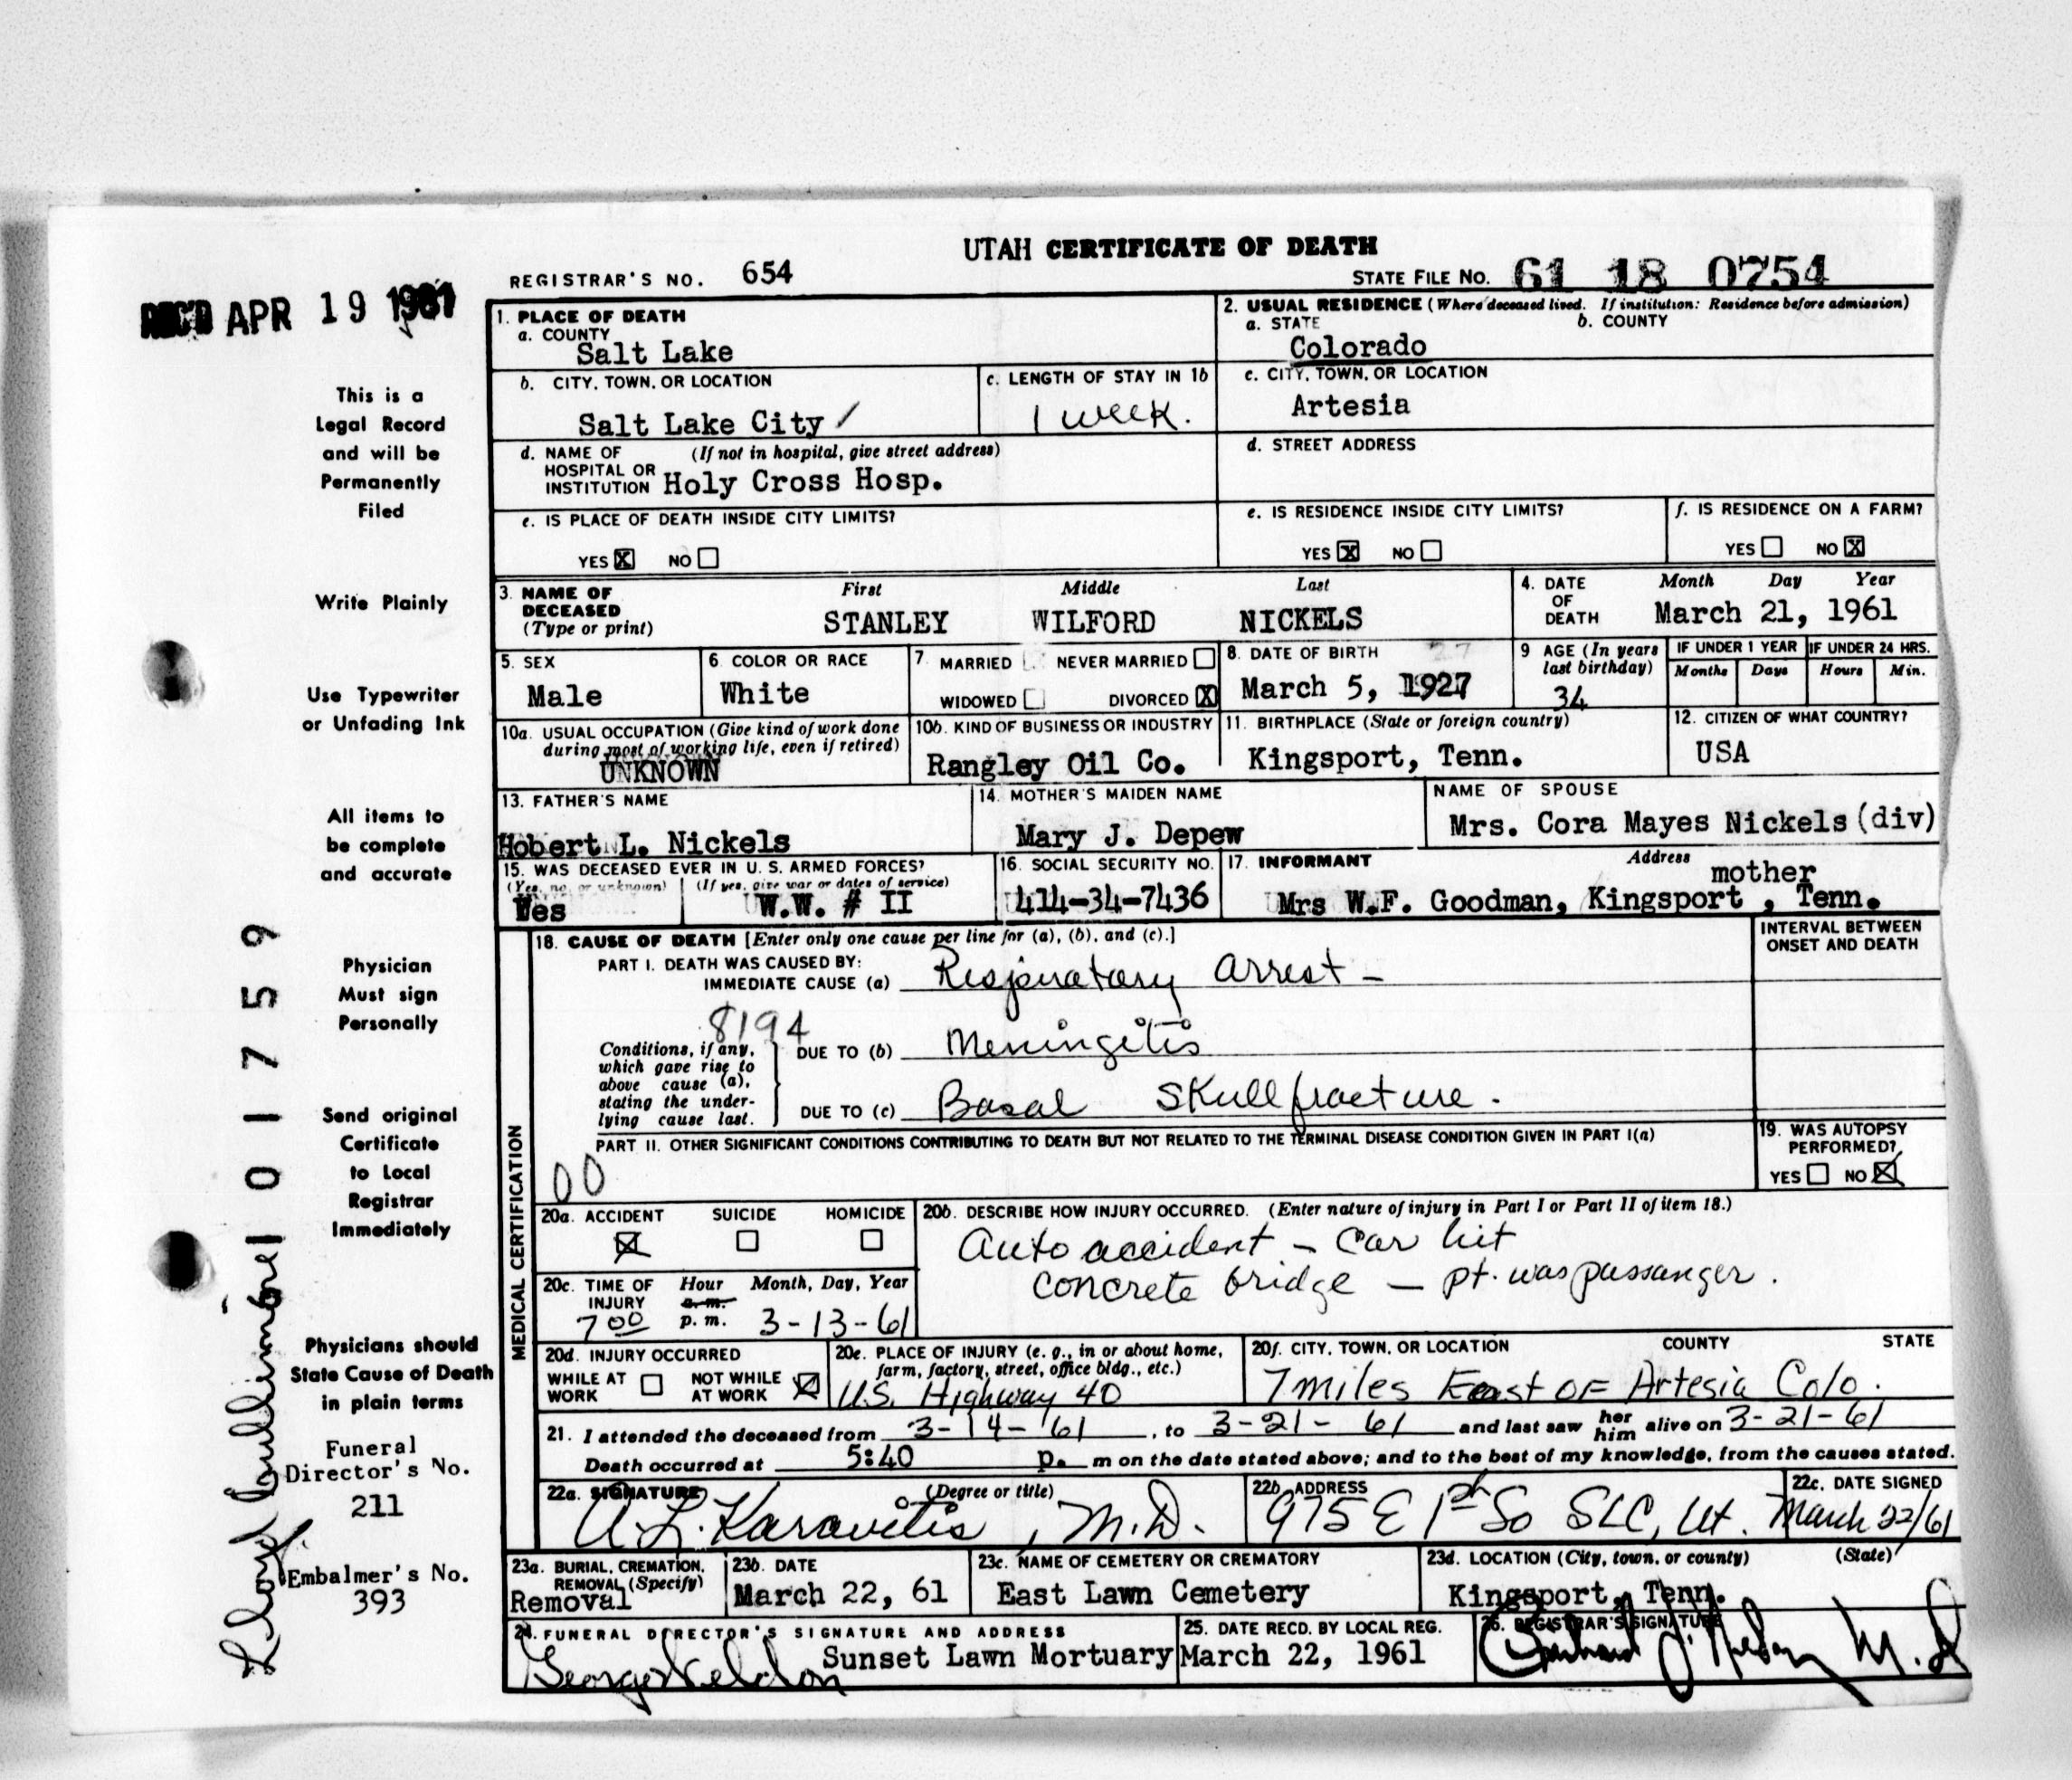 UTAH CERTIFICATE OF DEATH
REGISTRAR'S NO. 654
STATE FILE NO. 61 18 0754
REC'D APR 19 1961
1. PLACE OF DEATH
a. COUNTY
Salt Lake
2. USUAL RESIDENCE (Where deceased lived. If institution: Residence before admission)
a. STATE b. COUNTY
Colorado
b. CITY, TOWN, OR LOCATION
Salt Lake City
c. LENGTH OF STAY IN 1b
1 week.
c. CITY, TOWN, OR LOCATION
Artesia
d. NAME OF (If not in hospital, give street address)
HOSPITAL OR
INSTITUTION Holy Cross Hosp.
d. STREET ADDRESS
e. IS PLACE OF DEATH INSIDE CITY LIMITS?
YES X NO
e. IS RESIDENCE INSIDE CITY LIMITS?
YES X NO
f. IS RESIDENCE ON A FARM?
YES NO X
3. NAME OF DECEASED
(Type or print)
First Middle Last
STANLEY WILFORD NICKELS
4. DATE OF DEATH
Month Day Year
March 21, 1961
5. SEX
Male
6. COLOR OR RACE
White
7. MARRIED NEVER MARRIED
WIDOWED DIVORCED X
8. DATE OF BIRTH 27
March 5, 1927
9 AGE (In years
last birthday)
34
IF UNDER 1 YEAR IF UNDER 24 HRS.
Months Days Hours Min.
10a. USUAL OCCUPATION (Give kind of work done
during most of working life, even if retired)
UNKNOWN
10b. KIND OF BUSINESS OR INDUSTRY
Rangley Oil Co.
11. BIRTHPLACE (State or foreign country)
Kingsport, Tenn.
12. CITIZEN OF WHAT COUNTRY?
USA
13. FATHER'S NAME
Hobert L. Nickels
14. MOTHER'S MAIDEN NAME
Mary J. Depew
NAME OF SPOUSE
Mrs. Cora Mayes Nickels (div)
15. WAS DECEASED EVER IN U. S. ARMED FORCES?
(Yes, no, or unknown) (If yes, give war or dates of service)
Yes W.W. # II
16. SOCIAL SECURITY NO.
414-34-7436
17. INFORMANT Address
mother
Mrs W.F. Goodman, Kingsport , Tenn.
18. CAUSE OF DEATH [Enter only one cause per line for (a), (b), and (c).]
INTERVAL BETWEEN
ONSET AND DEATH
PART I. DEATH WAS CAUSED BY:
IMMEDIATE CAUSE (a) Respiratory arrest -
8194
Conditions, if any,
which gave rise to
above cause (a),
stating the under-
lying cause last.
DUE TO (b) Meningitis
DUE TO (c) Basal Skull fracture.
PART II. OTHER SIGNIFICANT CONDITIONS CONTRIBUTING TO DEATH BUT NOT RELATED TO THE TERMINAL DISEASE CONDITION GIVEN IN PART I(a)
00
19. WAS AUTOPSY
PERFORMED?
YES NO X
MEDICAL CERTIFICATION
20a. ACCIDENT SUICIDE HOMICIDE
X
20b. DESCRIBE HOW INJURY OCCURRED. (Enter nature of injury in Part I or Part II of item 18.)
Auto accident - Car hit
concrete bridge - pt. was passanger.
20c. TIME OF Hour Month, Day, Year
INJURY a. m.
7 00 p. m. 3-13-61
20d. INJURY OCCURRED
WHILE AT WORK NOT WHILE AT WORK X
20e. PLACE OF INJURY (e. g., in or about home,
farm, factory, street, office bldg., etc.)
U.S. Highway 40
20f. CITY, TOWN, OR LOCATION COUNTY STATE
7 miles East of Artesia Colo.
21. I attended the deceased from 3-14-61, to 3-21-61 and last saw her him alive on 3-21-61
Death occurred at 5:40 p. m on the date stated above; and to the best of my knowledge, from the causes stated.
22a. SIGNATURE (Degree or title)
A.L. Karavitis, M.D.
22b. ADDRESS
975 E 1st So SLC, Ut.
22c. DATE SIGNED
March 22/61
23a. BURIAL, CREMATION,
REMOVAL (Specify)
Removal
23b. DATE
March 22, 61
23c. NAME OF CEMETERY OR CREMATORY
East Lawn Cemetery
23d. LOCATION (City, town, or county) (State)
Kingsport, Tenn.
24. FUNERAL DIRECTOR'S SIGNATURE AND ADDRESS
Sunset Lawn Mortuary
25. DATE RECD. BY LOCAL REG.
March 22, 1961
26. REGISTRAR'S SIGNATURE
M.D
This is a
Legal Record
and will be
Permanently
Filed
Write Plainly
Use Typewriter
or Unfading Ink
All items to
be complete
and accurate
Physician
Must sign
Personally
Send original
Certificate
to Local
Registrar
Immediately
Physicians should
State Cause of Death
in plain terms
Funeral
Director's No.
211
Embalmer's No.
393
101759